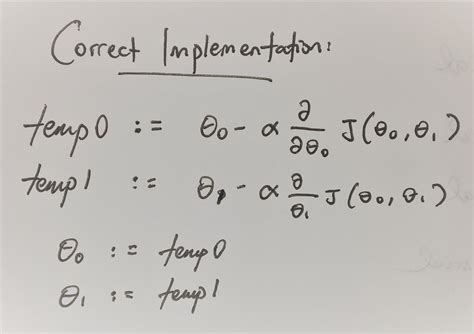 Correct Implementation:
temp0 := θ₀ - α ∂/∂θ₀ J(θ₀, θ₁)
temp1 := θ₁ - α ∂/θ₁ J(θ₀, θ₁)
θ₀ := temp0
θ₁ := temp1